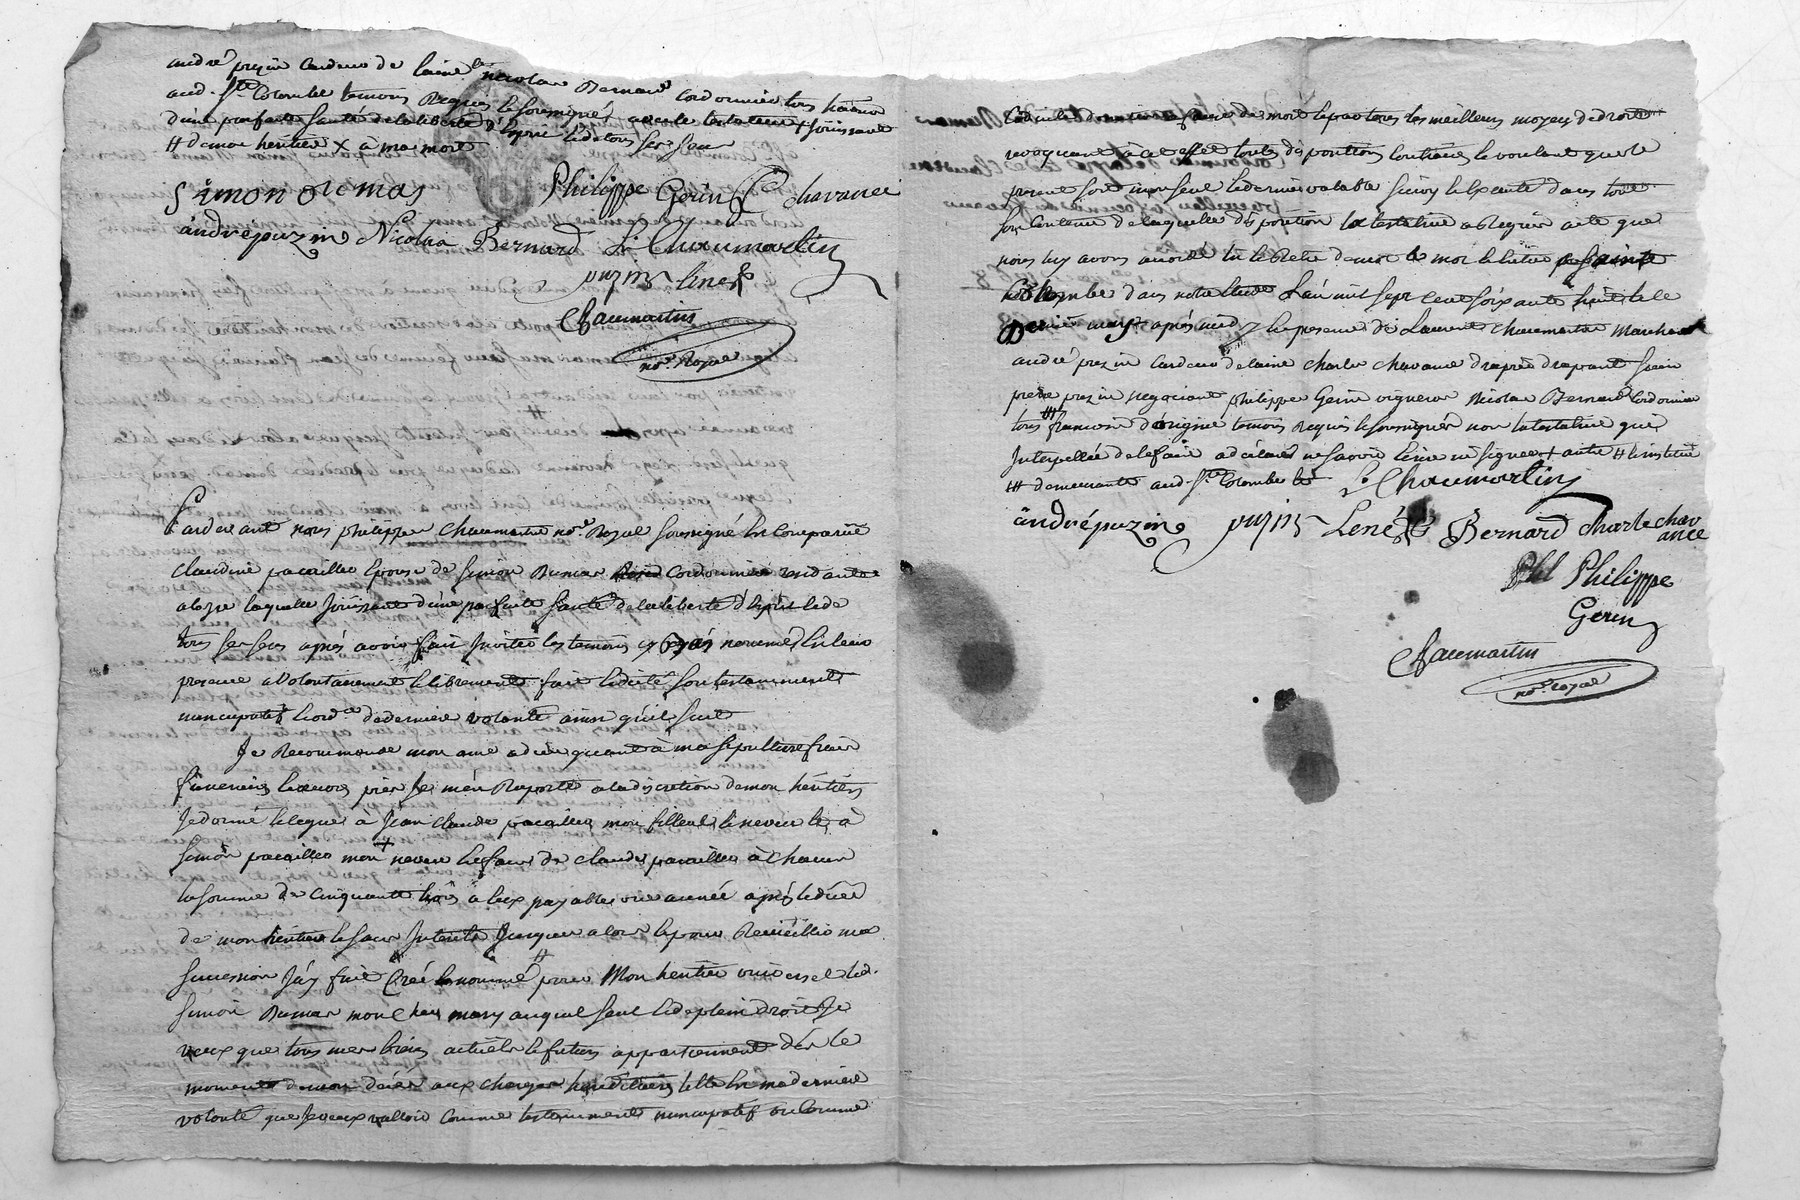 andré puzin cardeur de laine nicolas Bernard cordonnier tous
aud. Ste Colombe temoins Requis & soussignés avec le testateur + Jouissant
d'une parfaite santé de la liberté d'esprit & de tous ses sens
# de mon héritier X à ma mort
Simon dumas Philippe Gerin C chavance
andrépuzin Nicolas Bernard L. Chaumartin
puzin lene
Chaumartin
no.re Royal
Pardevant nous philippe Chaumartin no.re Royal soussigné En Comparüe
claudine pacailler Epouse de Simon Dumas cordonnier
laquelle Jouissant d'une parfaite santé de la liberté d'Esprit & de
tous ses sens après avoir fait Inviter les temoins cy après nommés En leur
presence a volontairement & librement fait & dicté son testamment
nuncupatif & ord.ce de derniere volonté ainsi qu'il suit
Je Recommande mon ame a dieu quant à ma sepulture frais
funeraires & œuvres pies Je m'en Raporte a la discretion de mon héritier
Je donne & legue à Jean Claude pacailler mon filleul & neveu & à
Simon pacailler mon + neveu de claude pacaillier à Chacun
la somme de Cinquante livres a Eux payables une année après le décès
de mon héritier & sans Interets Jusques alors & pour Recueillir ma
succession J'ay fait Créé & nommé # pour Mon heritier universel led.
Simon Dumas mon Cher mary auquel seul & de plein droit Je
veux que tous mes biens actuels & futurs appartiennent dès le
moment de mon décès aux charges héréditaires telle Est ma derniere
volonté que Je veux valloir Comme testamment nuncupatif ou Comme
Codicille donation a cause de mort & par tous les meilleurs moyens de droit
revoquant à cet effet toutes dispositions Contraires & voulant que le
present soit mon seul & dernier valable suivy & Exécuté dans toute
son Contenu de laquelle disposition la testatrice a Requis acte que
nous luy avons accordé lû & Relû de mot à mot & faite a Sainte
Colombe dans notre Etude L'an mil sept cent soixante huit & le
Dernier mars après midy En presence de Laurent Chaumartin Marchand
andré puzin cardeur de laine Charle chavance drapier drapant sieur
pierre puzin negociant philippe Gerin vigneron Nicolas Bernard Cordonnier
tous ### francois d'origine temoins Requis & soussignés non la testatrice que
Interpellée de le faire a declaré ne savoir Ecrire ni signer + autre # & institué
### demeurants aud. Ste Colombe
L. Chaumartin
andrépuzin puzin Lené Bernard Charle chavance
Phl Philippe
Gerin
Chaumartin
no.re royal